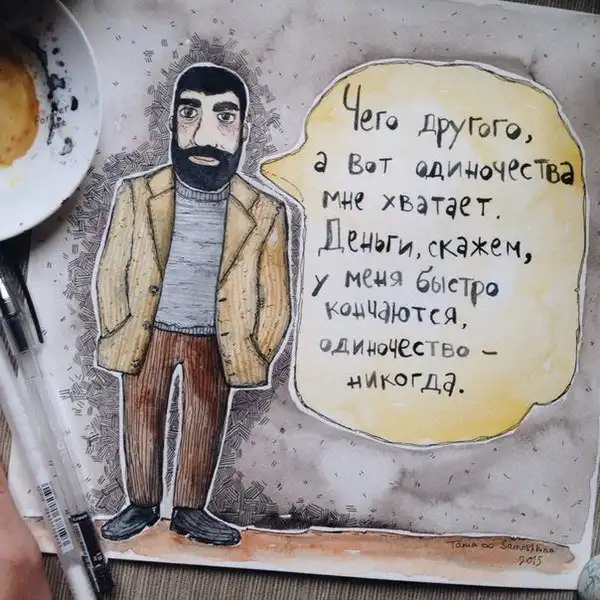 Чего другого,
а вот одиночества
мне хватает.
Деньги, скажем,
у меня быстро
кончаются,
одиночество –
никогда.
2015